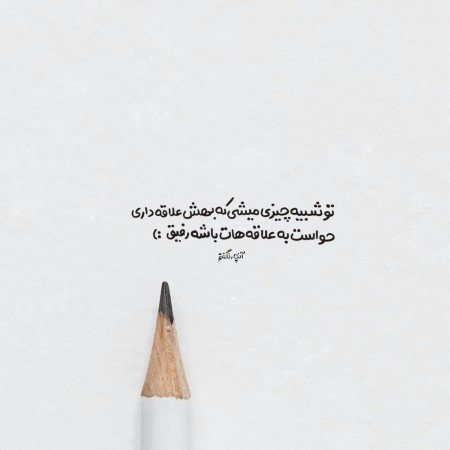 تو شبیه چیزی میشی که بهش علاقه داری
حواست به علاقه‌هات باشه رفیق :)